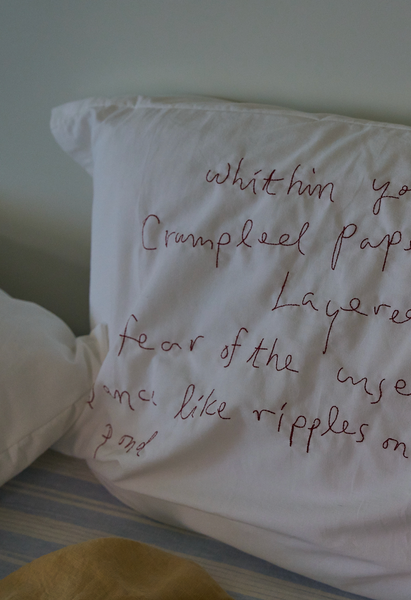 whithin yo
Crumpled pape
Layere
fear of the unse
like ripples on
Pond